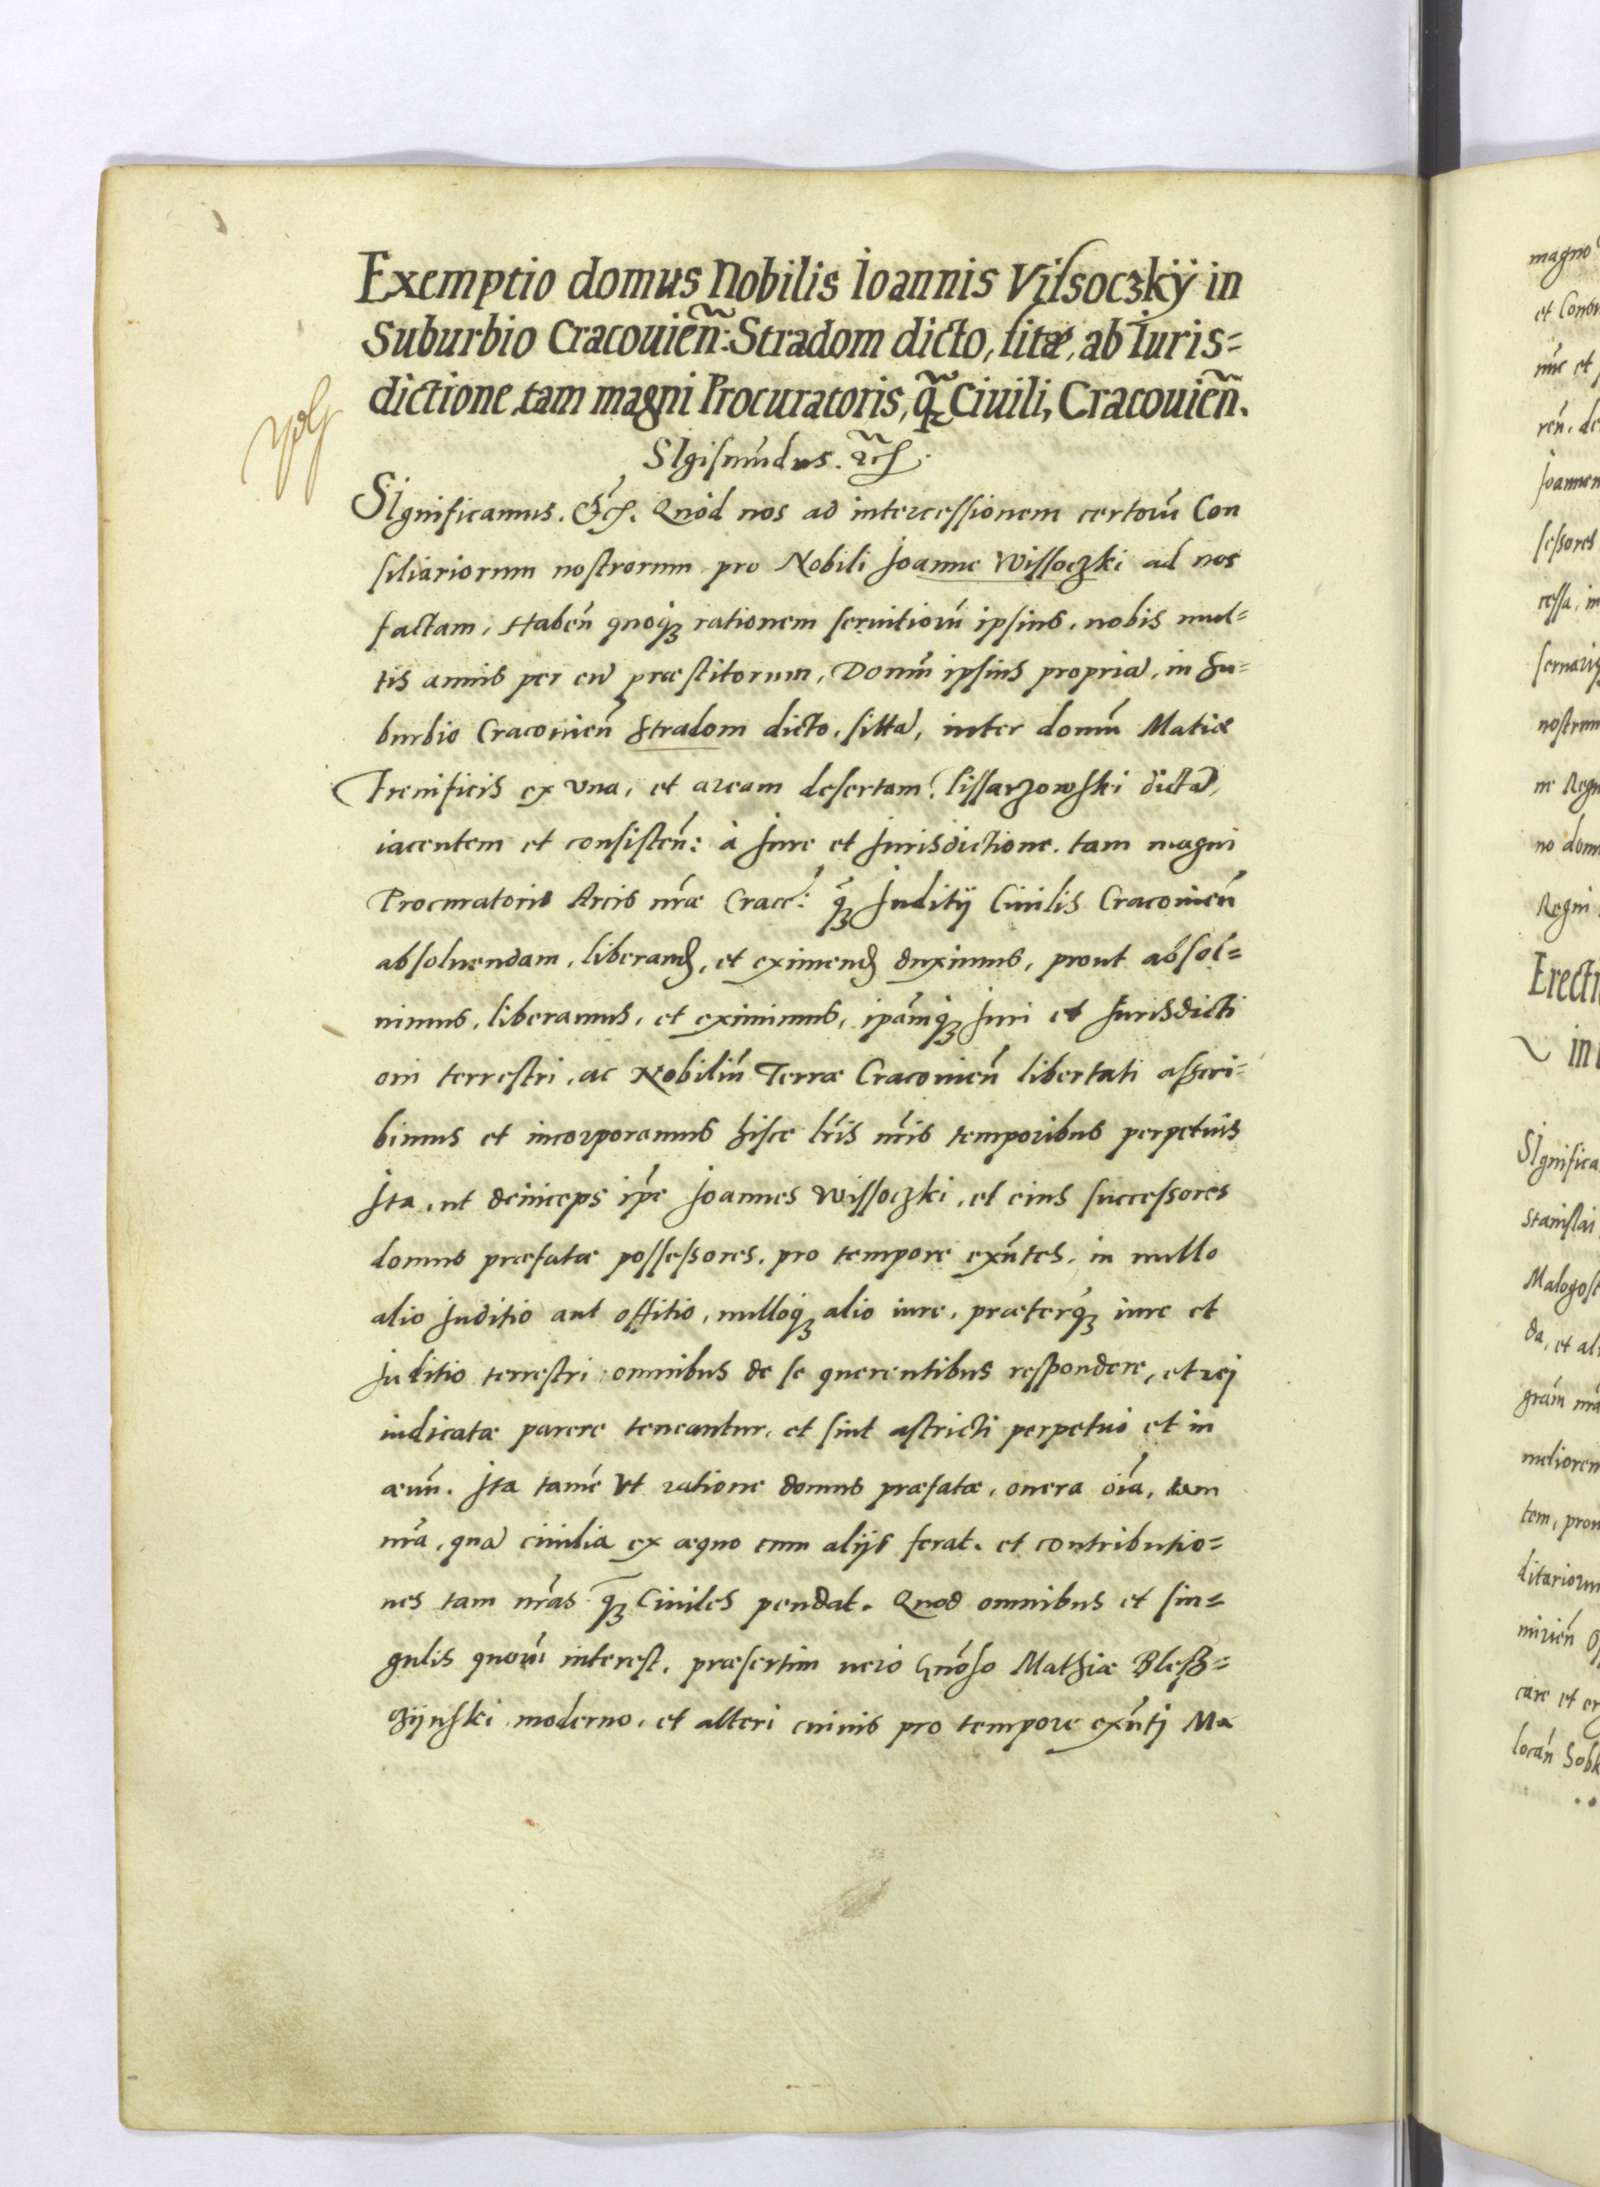 Exemptio domus Nobilis Ioannis Vilsoczkÿ in
Suburbio Cracouień: Stradom dicto, sitæ, ab Iuris=
dictione tam magni Procuratoris, q̃ʒ Ciuili, Cracouień.
SIgismūdus. ꝛc̃.
SIgnificamus. Ec̃. Quòd nos ad intercessionem certorū Con
siliariorum nostrorum pro Nobili Joanne Wissoczki ad nos
factam, Habeñ quoqʒ rationem seruitiorū ipsius, nobis mul=
tis annis per eū præstitorum, Domū ipsius propriā, in Su=
burbio Cracouień Stradom dicto, sittā, inter domū Matiæ
Frenificis ex vna, et aream desertam, lissarzowski dictā,
iacentem et consisteñ: à Jure et Jurisdictione tam magni
Procuratoris Arcis nr̃æ Cracc: q̃ʒ Juditij Ciuilis Cracouień
absoluendam, liberanđ, et eximenđ duximus, prout absol=
uimus, liberamus, et eximimus, ip̃amqʒ Juri et Jurisdicti
oni terrestri, ac Nobiliū Terræ Cracouień libertati asscri=
bimus et incorporamus hisce lr̃is nr̃is temporibus perpetuis
Jta, ut deinceps ip̃e Joannes Wissoczki, et eius successores
domus præfatæ possessores, pro tempore exñtes, in nullo
alio Juditio aut offitio, nulloqʒ alio iure, præterq̃ʒ iure et
Juditio terrestri omnibus de se querentibus respondere, et rej
iudicatæ parere teneantur, et sint astricti perpetuò et in
æuū. Jta tamē vt ratione domus præfatæ, onera oīa, tam
nr̃a, quā ciuilia ex æquo cum alijs ferat. et contributio=
nes tam nr̃as q̃ʒ Ciuiles pendat. Quod omnibus et sin=
gulis quorū interest, præsertim uero Gñoso Mathiæ Blesz=
zijnski moderno, et alteri cuiuis pro tempore exñtj Ma
magno
SIgnifica
Stanislai
Malogosc
da, et al
ditarium
Regni
no dom
nostrum
Erecti
in